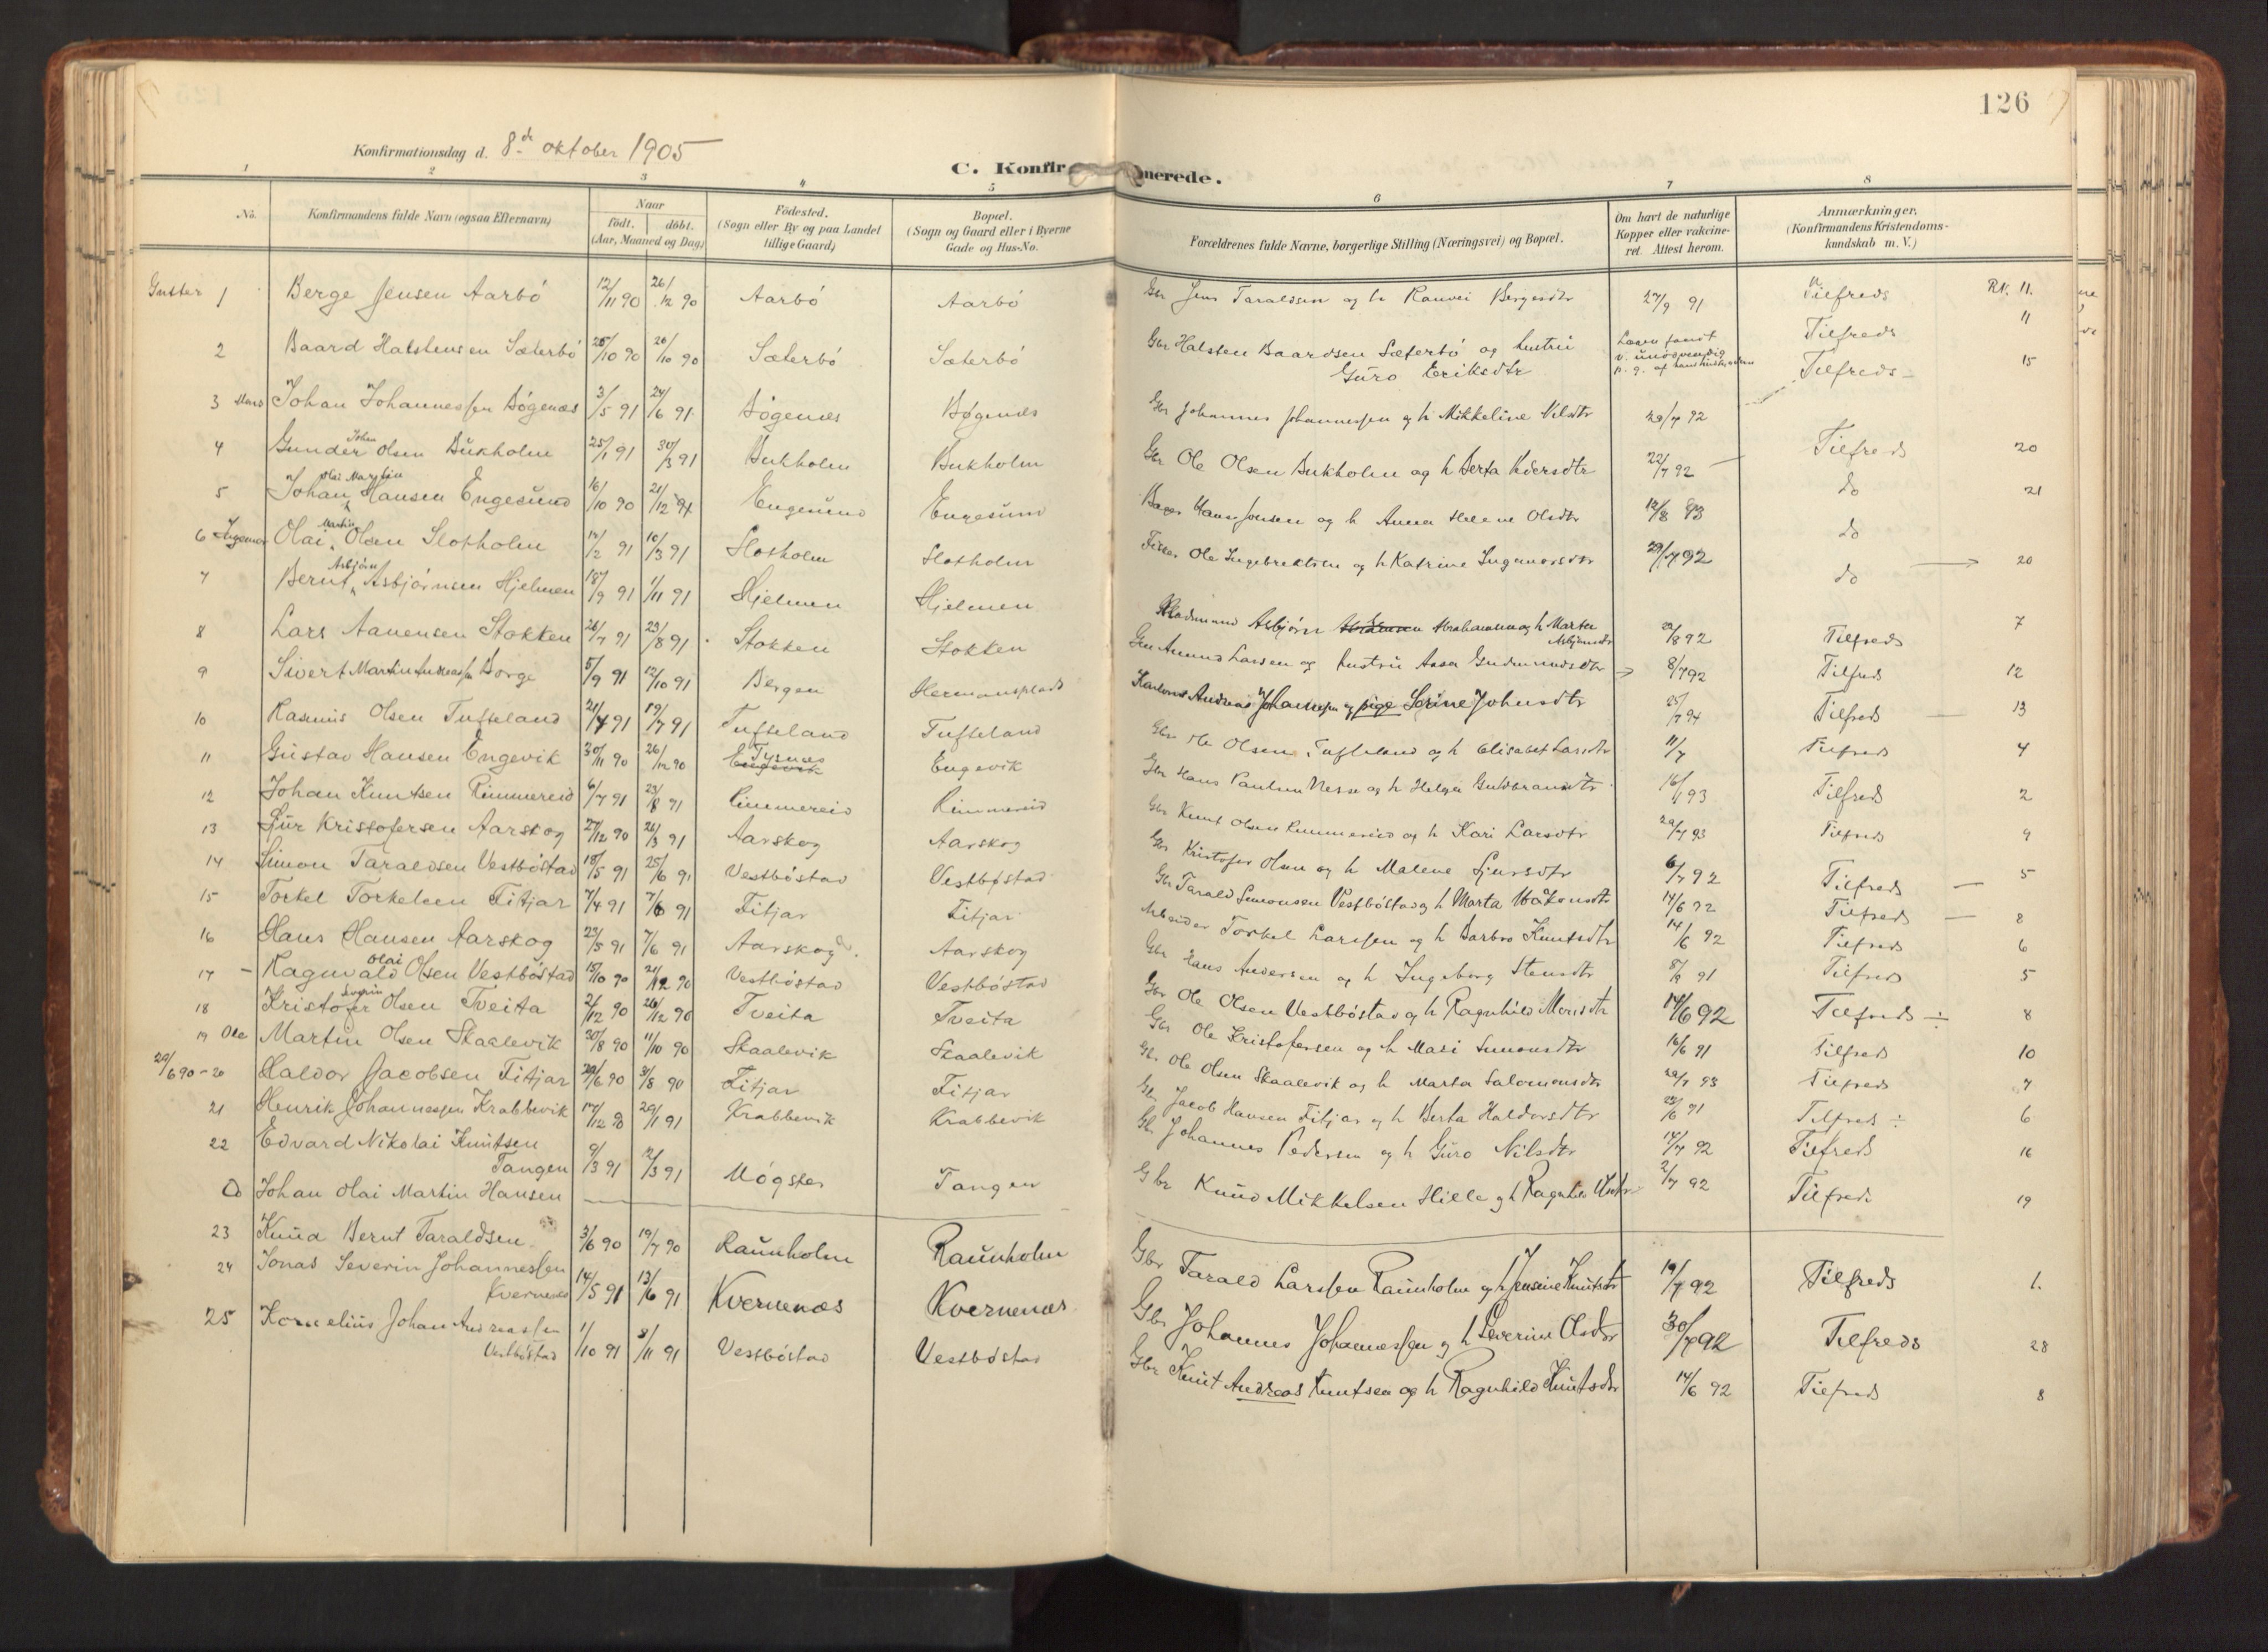 126
Konfirmationsdag d. 8de oktober 1905
C. Konfirmerede.
1 2 3 4 5 6 7 8
No. Konfirmandens fulde Navn (ogsaa Efternavn) Naar födt. döbt. (Aar, Maaned og Dag) Födested. (Sogn eller By og paa Landet tillige Gaard) Bopæl. (Sogn og Gaard eller i Byerne Gade og Hus-No. Forældrenes fulde Navne, borgerlige Stilling (Næringsvei) og Bopæl. Om havt de naturlige Kopper eller vakcineret. Attest herom. Anmærkninger. (Konfirmandens Kristendomskundskab m. V.)
Gutter 1 Berge Jensen Aarbö 12/11 90 26/12 90 Aarbö Aarbö Gbr Jens Taraldsen og h Ranvei Bergesdtr 27/9 91 Tilfreds RN. 11.
2 Baard Halstensen Sæterbö 25/10 90 Sæterbö Sæterbö Gbr Halsten Baardsen Sæterbö og hustru Guro Eriksdtr Tilfreds 11
3 Johan Johannessen Bögenæs 3/5 91 24/6 91 Bögenæs Bögenæs Gbr Johannes Johannessen og h Mikkeline Nilsdtr 29/7 92 Tilfreds 15
4 Gunder Johan Olsen Bukholm 25/1 91 30/3 91 Bukholm Bukholm Gbr Ole Olsen Bukholm og h Berta Iversdtr 22/7 92 Tilfreds 20
5 Johan Olai Martin Hansen Engesund 16/10 90 21/12 Engesund Engesund Hans Jensen og h Anna Helene Olsdtr 12/8 93 do 21
6 Ingemar Olai Martin Olsen Slotholm 91 10/3 91 Slotholm Slotholm Fisker Ole Ingebrektsen og h Katrine Ingemarsdtr 29/7 92 do 20
7 Bernt Asbjörn Asbjörnsen Hjelmen 18/9 91 1/11 91 Hjelmen Hjelmen Asbjörn Abrahamsen og h Marta Asbjörnsdtr 22/8 92 do 7
8 Lars Aamensen Stokken 26/7 91 23/8 91 Stokken Stokken Larsen og hustru Aasa Gudmundsdtr 8/7 92 Tilfreds 12
9 Sivert Martin Andreassen Borge 5/9 91 12/10 91 Bergen Hermansplads Andreas Johannesen og pige Serine Johnsdtr 25/7 94 Tilfreds 13
10 Rasmus Olsen Tufteland 21/4 91 19/7 91 Tufteland Tufteland Gbr Ole Olsen Tufteland og h Elisabet Larsdtr 11/7 Tilfreds 4
11 Gustav Hansen Engevik 30/11 90 26/12 90 Tysnes Engevik Engevik Gbr Hans Paulsen Nesse og h Helga Guldbrandsdtr 93 Tilfreds 2
12 Johan Knutsen Rimmereid 6/7 91 23/8 91 Rimmereid Rimmereid Gbr Knut Olsen Rimmereid og h Kari Larsdtr 29/7 93 Tilfreds 9
13 Sjur Kristofersen Aarskog 27/12 90 3 91 Aarskog Aarskog Gbr Kristofer Olsen og h Malene Sjursdtr 6/7 92 Tilfreds 5
14 Simon Taraldsen Vestböstad 18/5 91 25/6 91 Vestböstad Vestböstad Gbr Tarald Simonsen Vestböstad og h Marta Haakonsdtr 14/6 92 Tilfreds 8
15 Torkel Torkelsen Fitjar 7/4 91 7/6 91 Fitjar Fitjar Arbeider Torkel Larssen og h Barbro Knutsdtr 14/6 92 Tilfreds 6
16 Hans Hansen Aarskog 23/5 91 7/6 91 Aarskog Aarskog Gbr Hans Andersen og h Ingeborg Stensdtr 91 Tilfreds 5
17 Ragnvald Olai Olsen Vestböstad 15/10 90 21/12 90 Vestböstad Vestböstad Gbr Ole Olsen Vestböstad og h Ragnhild Monsdtr 14/6 92 Tilfreds 8
18 Kristofer Severin Olsen Tveita 2/12 90 26/12 90 Tveita Tveita Gbr Ole Kristofersen og h Mari Simonsdtr 16/6 91 Tilfreds 10
19 Ole Martin Olsen Skaalevik 30/8 90 11/10 90 Skaalevik Skaalevik Gbr Ole Olsen Skaalevik og h Marta Salomonsdtr 29/7 93 Tilfreds 7
29/6 90 - 20 Haldor Jacobsen Fitjar 29/6 90 31/8 90 Fitjar Fitjar Gbr Jacob Hansen Fitjar og h Berta Haldorsdtr 22/6 91 Tilfreds 6
21 Henrik Johannessen Krabbevik 17/12 90 29/1 91 Krabbevik Krabbevik Gbr Johannes Pedersen og h Guro Nilsdtr 14/7 92 Tilfreds 16
22 Edvard Nikolai Knutsen Tangen 9/3 91 12/3 91 Mögster Tangen Gbr Knud Mikkelsen Hille og h Ragnhild 2/7 92 Tilfreds 19
Johan Olai Martin Hansen
23 Knud Bernt Taraldsen 3/6 90 19/7 90 Raunholm Raunholm Gbr Tarald Larssen Raunholm og h Jensine Knutsdtr 19/7 92 Tilfreds 1.
24 Jonas Severin Johannessen Kvernenes 14/5 91 13/6 91 Kvernenæs Kvernenæs Gbr Johannes Johannessen og h Severine Olsdtr 30/7 92 Tilfreds 28
25 Kornelius Johan Andreassen Vestböstad 1/10 91 8/11 91 Vestböstad Vestböstad Gbr Knut Andreas Knutsen og h Ragnhild Knutsdtr 14/6 92 Tilfreds 8